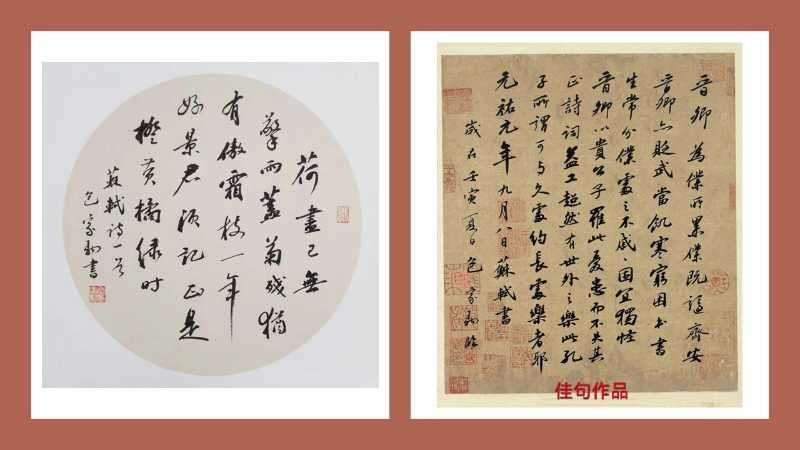 荷盡已無
擎雨蓋菊殘猶
有傲霜枝一年
好景君須記正是
橙黄橘緑时
蘇軾诗一首
包家書
晉卿為僕所累僕既謫齊安
晉卿亦貶武當飢寒窮困本書
生常分僕處之不戚戚固宜獨怪
晉卿以貴公子罹此憂患而不失其
正詩詞益工超然有世外之樂此孔
子所謂可与久處約長處樂者耶
元祐元年九月八日蘇軾書
歲在壬寅夏日包家臨
佳句作品